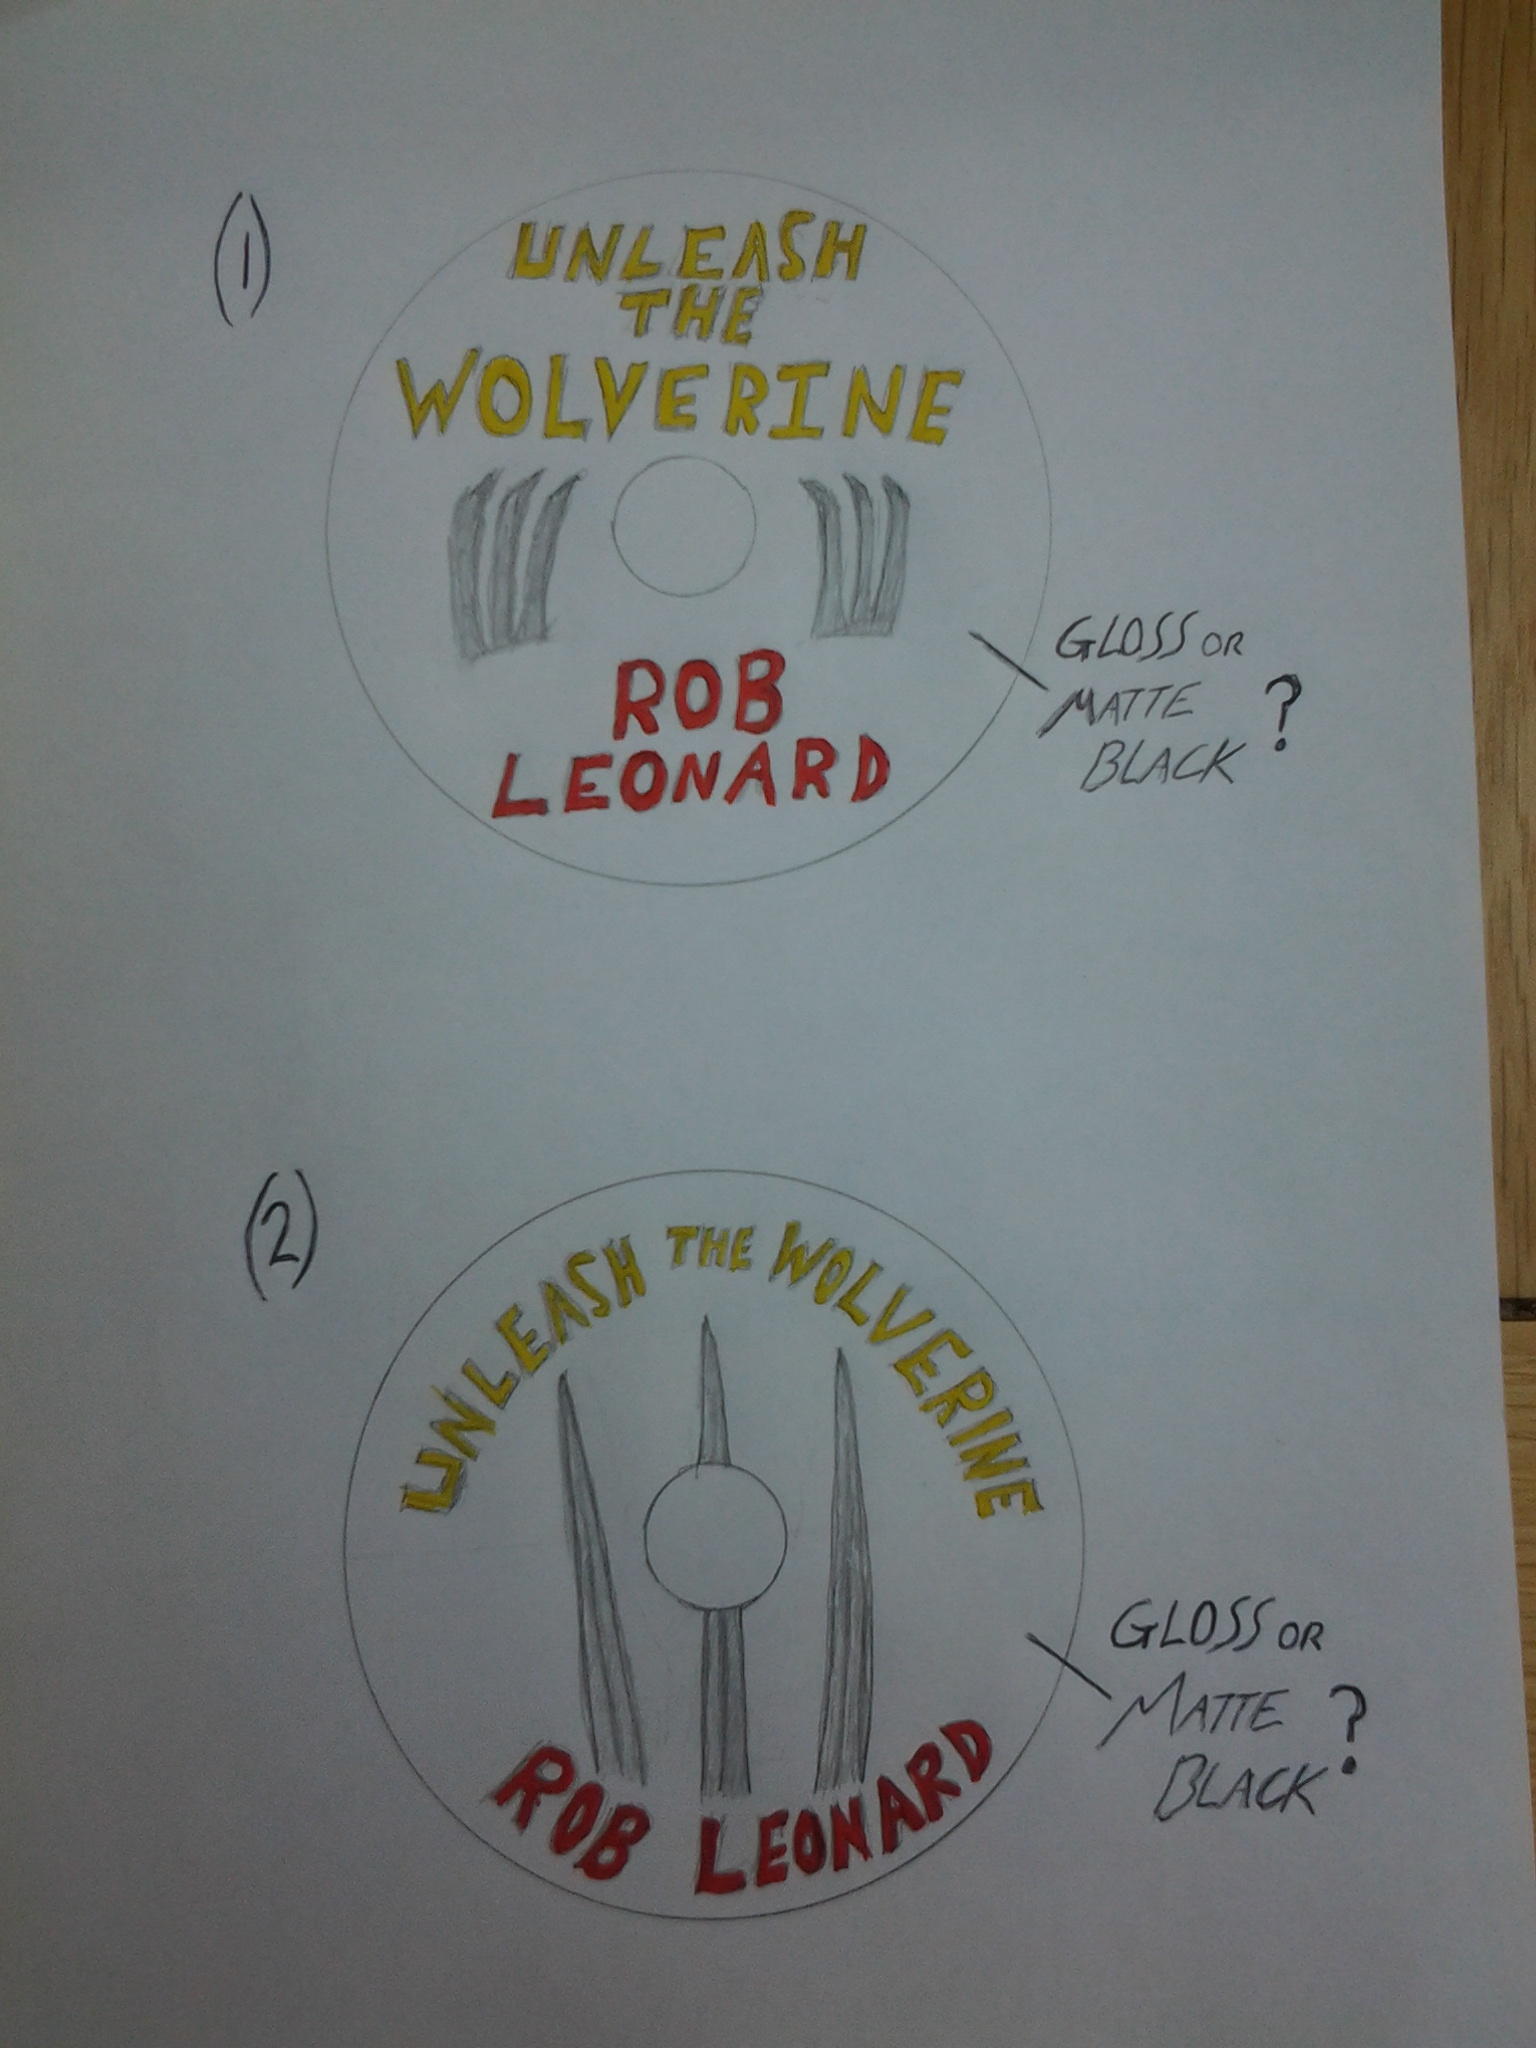 (1)
UNLEASH
THE
WOLVERINE
ROB
LEONARD
GLOSS OR
MATTE
BLACK ?
(2)
UNLEASH THE WOLVERINE
ROB LEONARD
GLOSS OR
MATTE
BLACK ?